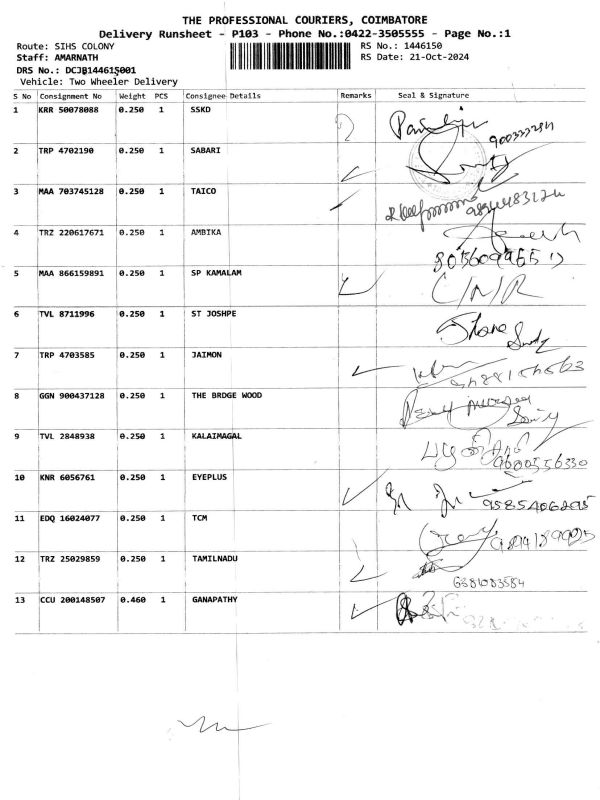 THE PROFESSIONAL COURIERS, COIMBATORE
Delivery Runsheet - P103 - Phone No.:0422-3505555 - Page No.:1
Route: SIHS COLONY RS No.: 1446150
Staff: AMARNATH RS Date: 21-Oct-2024
DRS No.: DCJB144615001
Vehicle: Two Wheeler Delivery
S No Consignment No Weight PCS Consignee Details Remarks Seal & Signature
1 KRR 50078088 0.250 1 SSKD
2 TRP 4702190 0.250 1 SABARI
3 MAA 703745128 0.250 1 TAICO
4 TRZ 220617671 0.250 1 AMBIKA
5 MAA 866159891 0.250 1 SP KAMALAM C/N/R
6 TVL 8711996 0.250 1 ST JOSHPE
7 TRP 4703585 0.250 1 JAIMON
8 GGN 900437128 0.250 1 THE BRDGE WOOD
9 TVL 2848938 0.250 1 KALAIMAGAL 9600556330
10 KNR 6056761 0.250 1 EYEPLUS 9585406295
11 EDQ 16024077 0.250 1 TCM
12 TRZ 25029859 0.250 1 TAMILNADU 6381083584
13 CCU 200148507 0.460 1 GANAPATHY